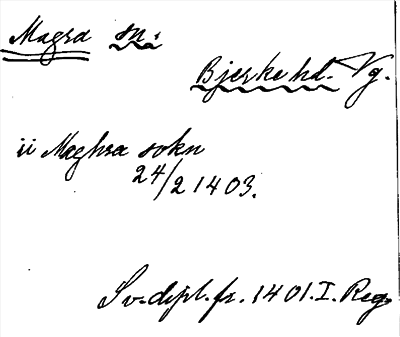 Magra sn:
Bjerke hd. Vg.
ii Maghra sokn
24/2 1403.
Sv. dipl. fr. 1401. I. Reg.